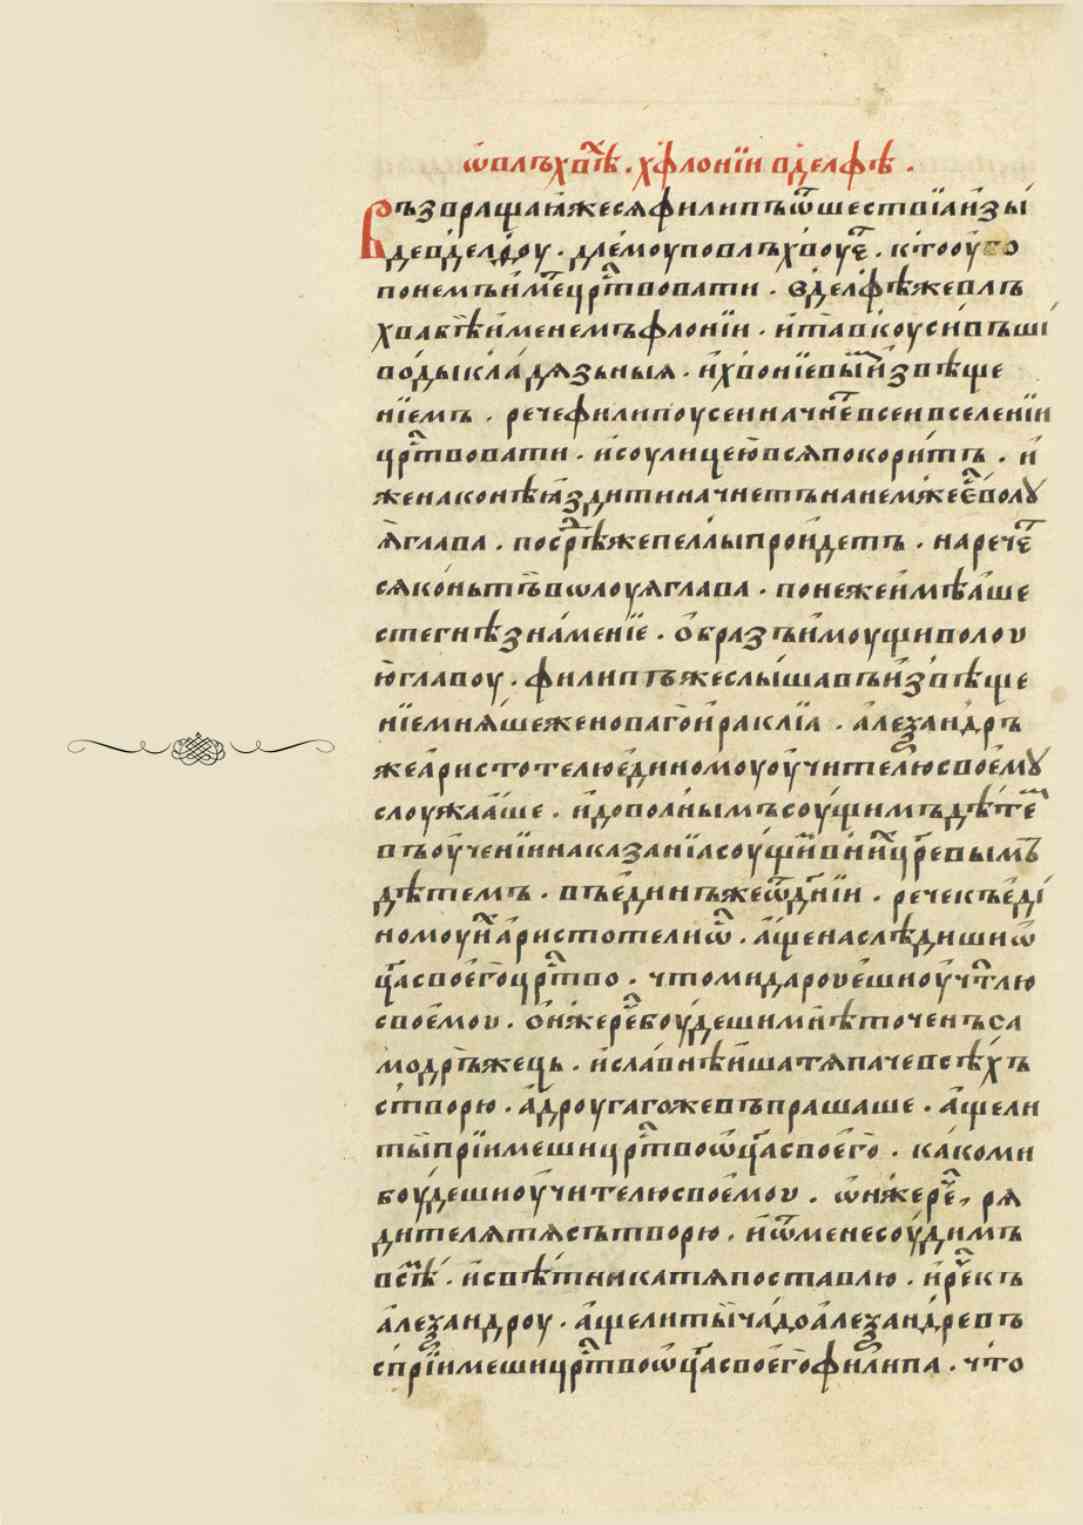 ѡ҆ влъхвѣ . хфлонїи вделфѣ .
Възвращаꙗ҆жесѧфилипъѿшествїаи҆зы
девделфоу . дае҆моуповлъхвоуе . ктооу҆бо
понемъи҆матецртвовати . вделфѣжевлъ
хвабѣи҆менемъфлонїи . и҆тавкоусивъши
водыкладѧзьныѧ . и҆хвонїевыи҆звѣще
нїемъ . речефилипоусенначневсенвселенїи
цртвовати . и҆соулицеювсѧпокоритъ . и҆
женаконѣꙗздитиначнетънанемжееволꙋ
ꙗглава . посрѣжепеллыпроидетъ . нарече
сѧконьтъвѡлоуꙗглава . понежеи҆мѣаше
стегнѣзнаменїе . о҆бразъи҆моущиволоу
юглавоу . филипъжеслышавъи҆звѣще
нїемнѧшеженовагои҆раклїа . а҆леѯандръ
жеа҆ристотелюе҆диномоуоу҆чителюсвое҆мꙋ
слоужааше . и҆довольнымъсоущимъдѣте
въоу҆ченїинаказанїасоущивниицревымъ
дѣтемъ . въе҆динъжеѿднїи . речекъе҆ди
номоуна҆ристотелиѿ . а҆щенаслѣдишиѡ҆
цасвое҆гоцртво . чтомидароуе҆шиоу҆чтлю
свое҆моу . о҆нжеребоудешиминѣточенъса
модръжець . и҆славнѣишатѧпачевсѣхъ
створю . а҆дроугагожевъпрашаше . а҆щели
тыпрїимешицртвоѡ҆цасвое҆го . какоми
боудешиоу҆чителюсвое҆моу . ѡ҆нжере , рѧ
дителѧтѧсътворю . и҆ѿменесоудимъ
всѣ . и҆свѣтникатѧпоставлю . и҆рекъ
а҆леѯандроу . а҆щелитычадоа҆леѯандревъ
спрїимешицртвоѡ҆цасвое҆гофилипа . что